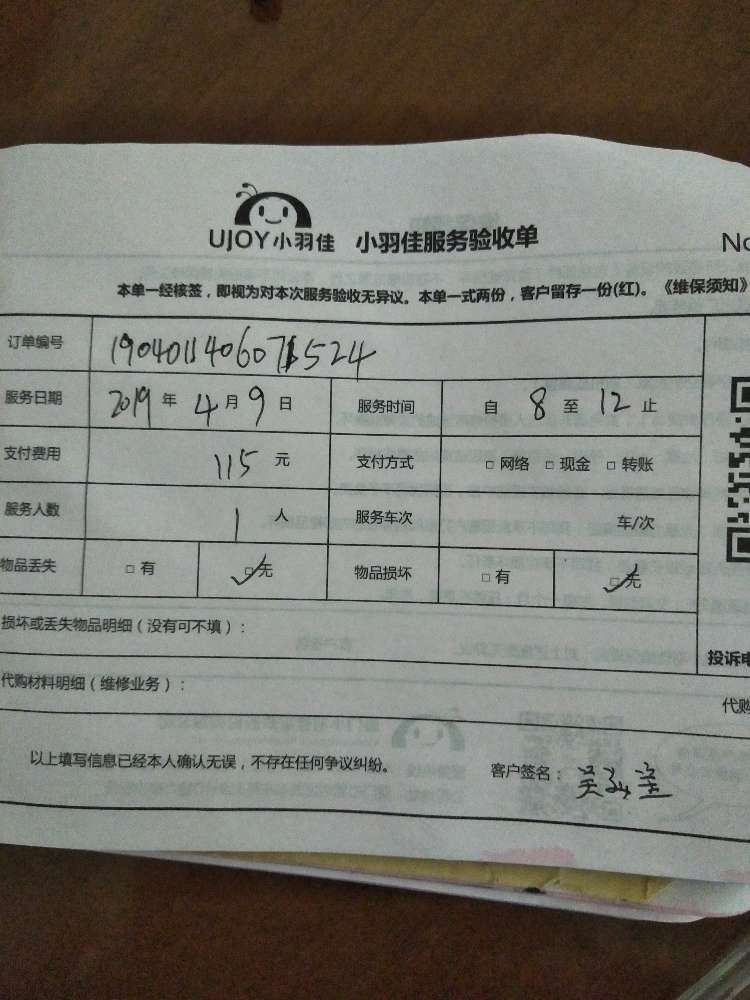 UJOY小羽佳 小羽佳服务验收单 No
本单一经核签，即视为对本次服务验收无异议。本单一式两份，客户留存一份(红)。《维保须知》
订单编号
服务日期 2019 年 4 月 9 日 服务时间 自 8 至 12 止
支付费用 115 元 支付方式 □ 网络 □ 现金 □ 转账
服务人数 1 人 服务车次 车/次
物品丢失 □ 有 □ 无 物品损坏 □ 有 □ 无
损坏或丢失物品明细（没有可不填）：
投诉电
代购材料明细（维修业务）： 代购
以上填写信息已经本人确认无误，不存在任何争议纠纷。 客户签名： 吴